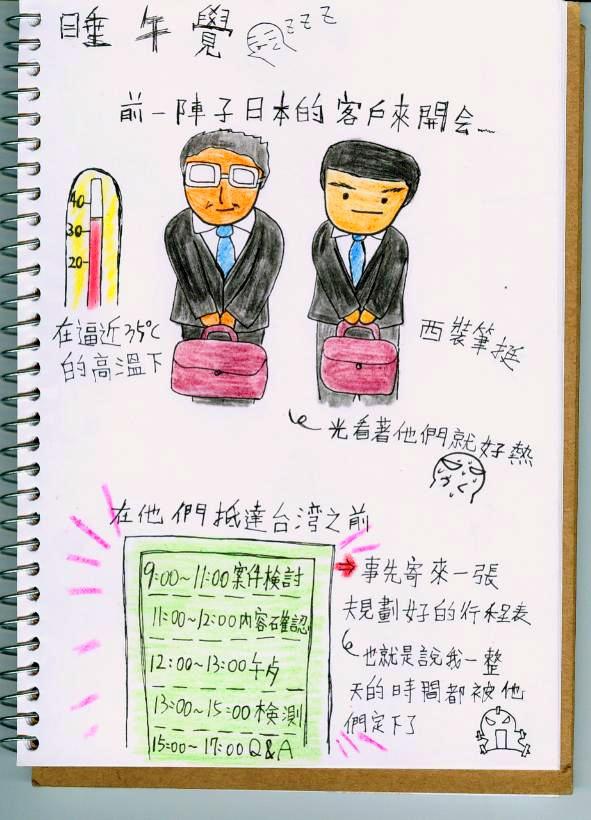 睡午覺 zzz
前一陣子日本的客戶來開会...
40
30
20
在逼近35℃
的高溫下
西裝筆挺
光看著他們就好熱
在他們抵達台湾之前
9:00~11:00案件検討
11:00~12:00内容確認
12:00~13:00午歺
13:00~15:00検測
15:00~17:00Q&A
事先寄來一張
規劃好的行程表
也就是說我一整
天的時間都被他
們定下了